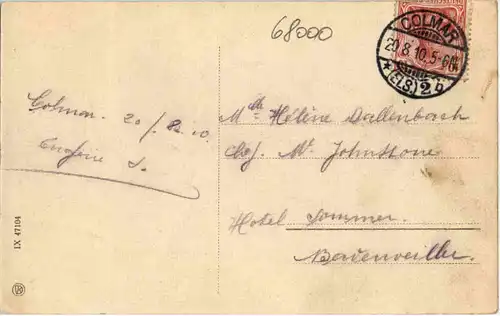 68000
COLMAR
20.8.10.5-6N
* (ELS.) 2 b
Colmar. 20/8.10.
Eugénie S.
Mlle Hélène Dallenbach
Chez Mr Johnstone
Hotel Sommer.
Badenweiler.
IX 47104